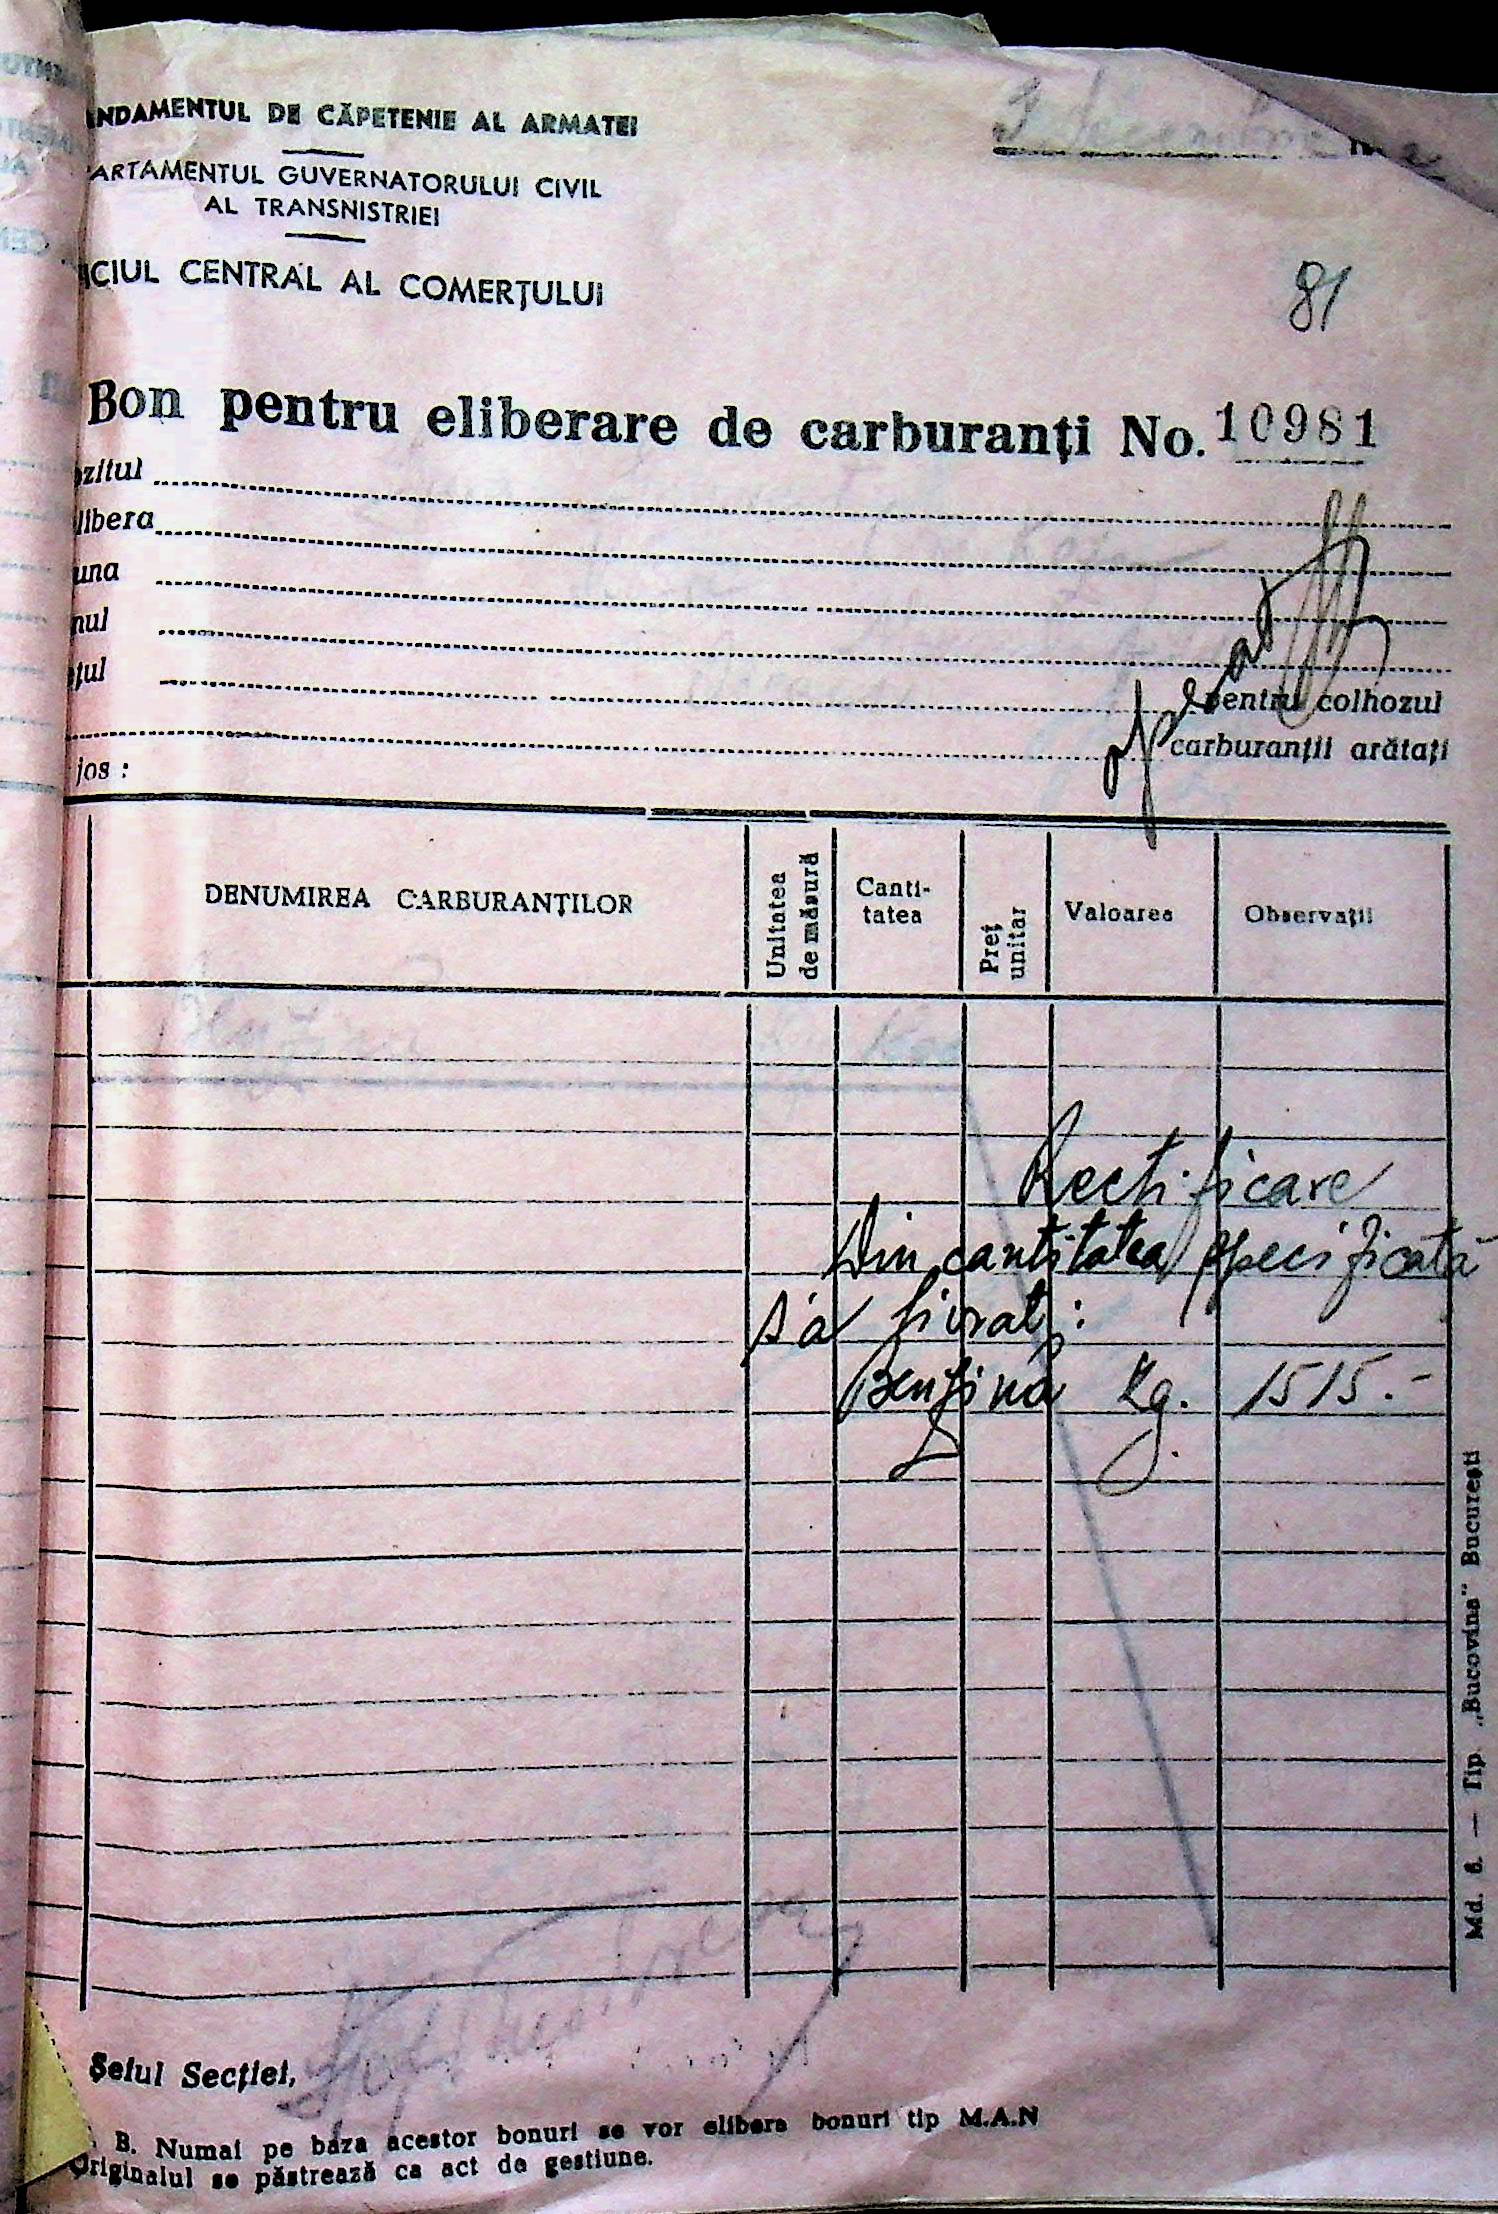 ANDAMENTUL DE CĂPETENIE AL ARMATEI
ARTAMENTUL GUVERNATORULUI CIVIL
AL TRANSNISTRIEI
ICIUL CENTRAL AL COMERȚULUI
81
Bon pentru eliberare de carburanți No. 10981
zitul
libera
una
nul
țul
pentru colhozul
carburanții arătați
jos :
DENUMIREA CARBURANȚILOR
Unitatea de măsură
Canti-
tatea
Preț unitar
Valoarea
Observații
Rectificare
Din cantitatea specificată
s'a livrat :
Benzină Kg. 1515.-
Șeful Secției,
B. Numai pe baza acestor bonuri se vor elibera bonuri tip M.A.N
Originalul se păstrează ca act de gestiune.
Md. 6. — Tip. „Bucovina" București